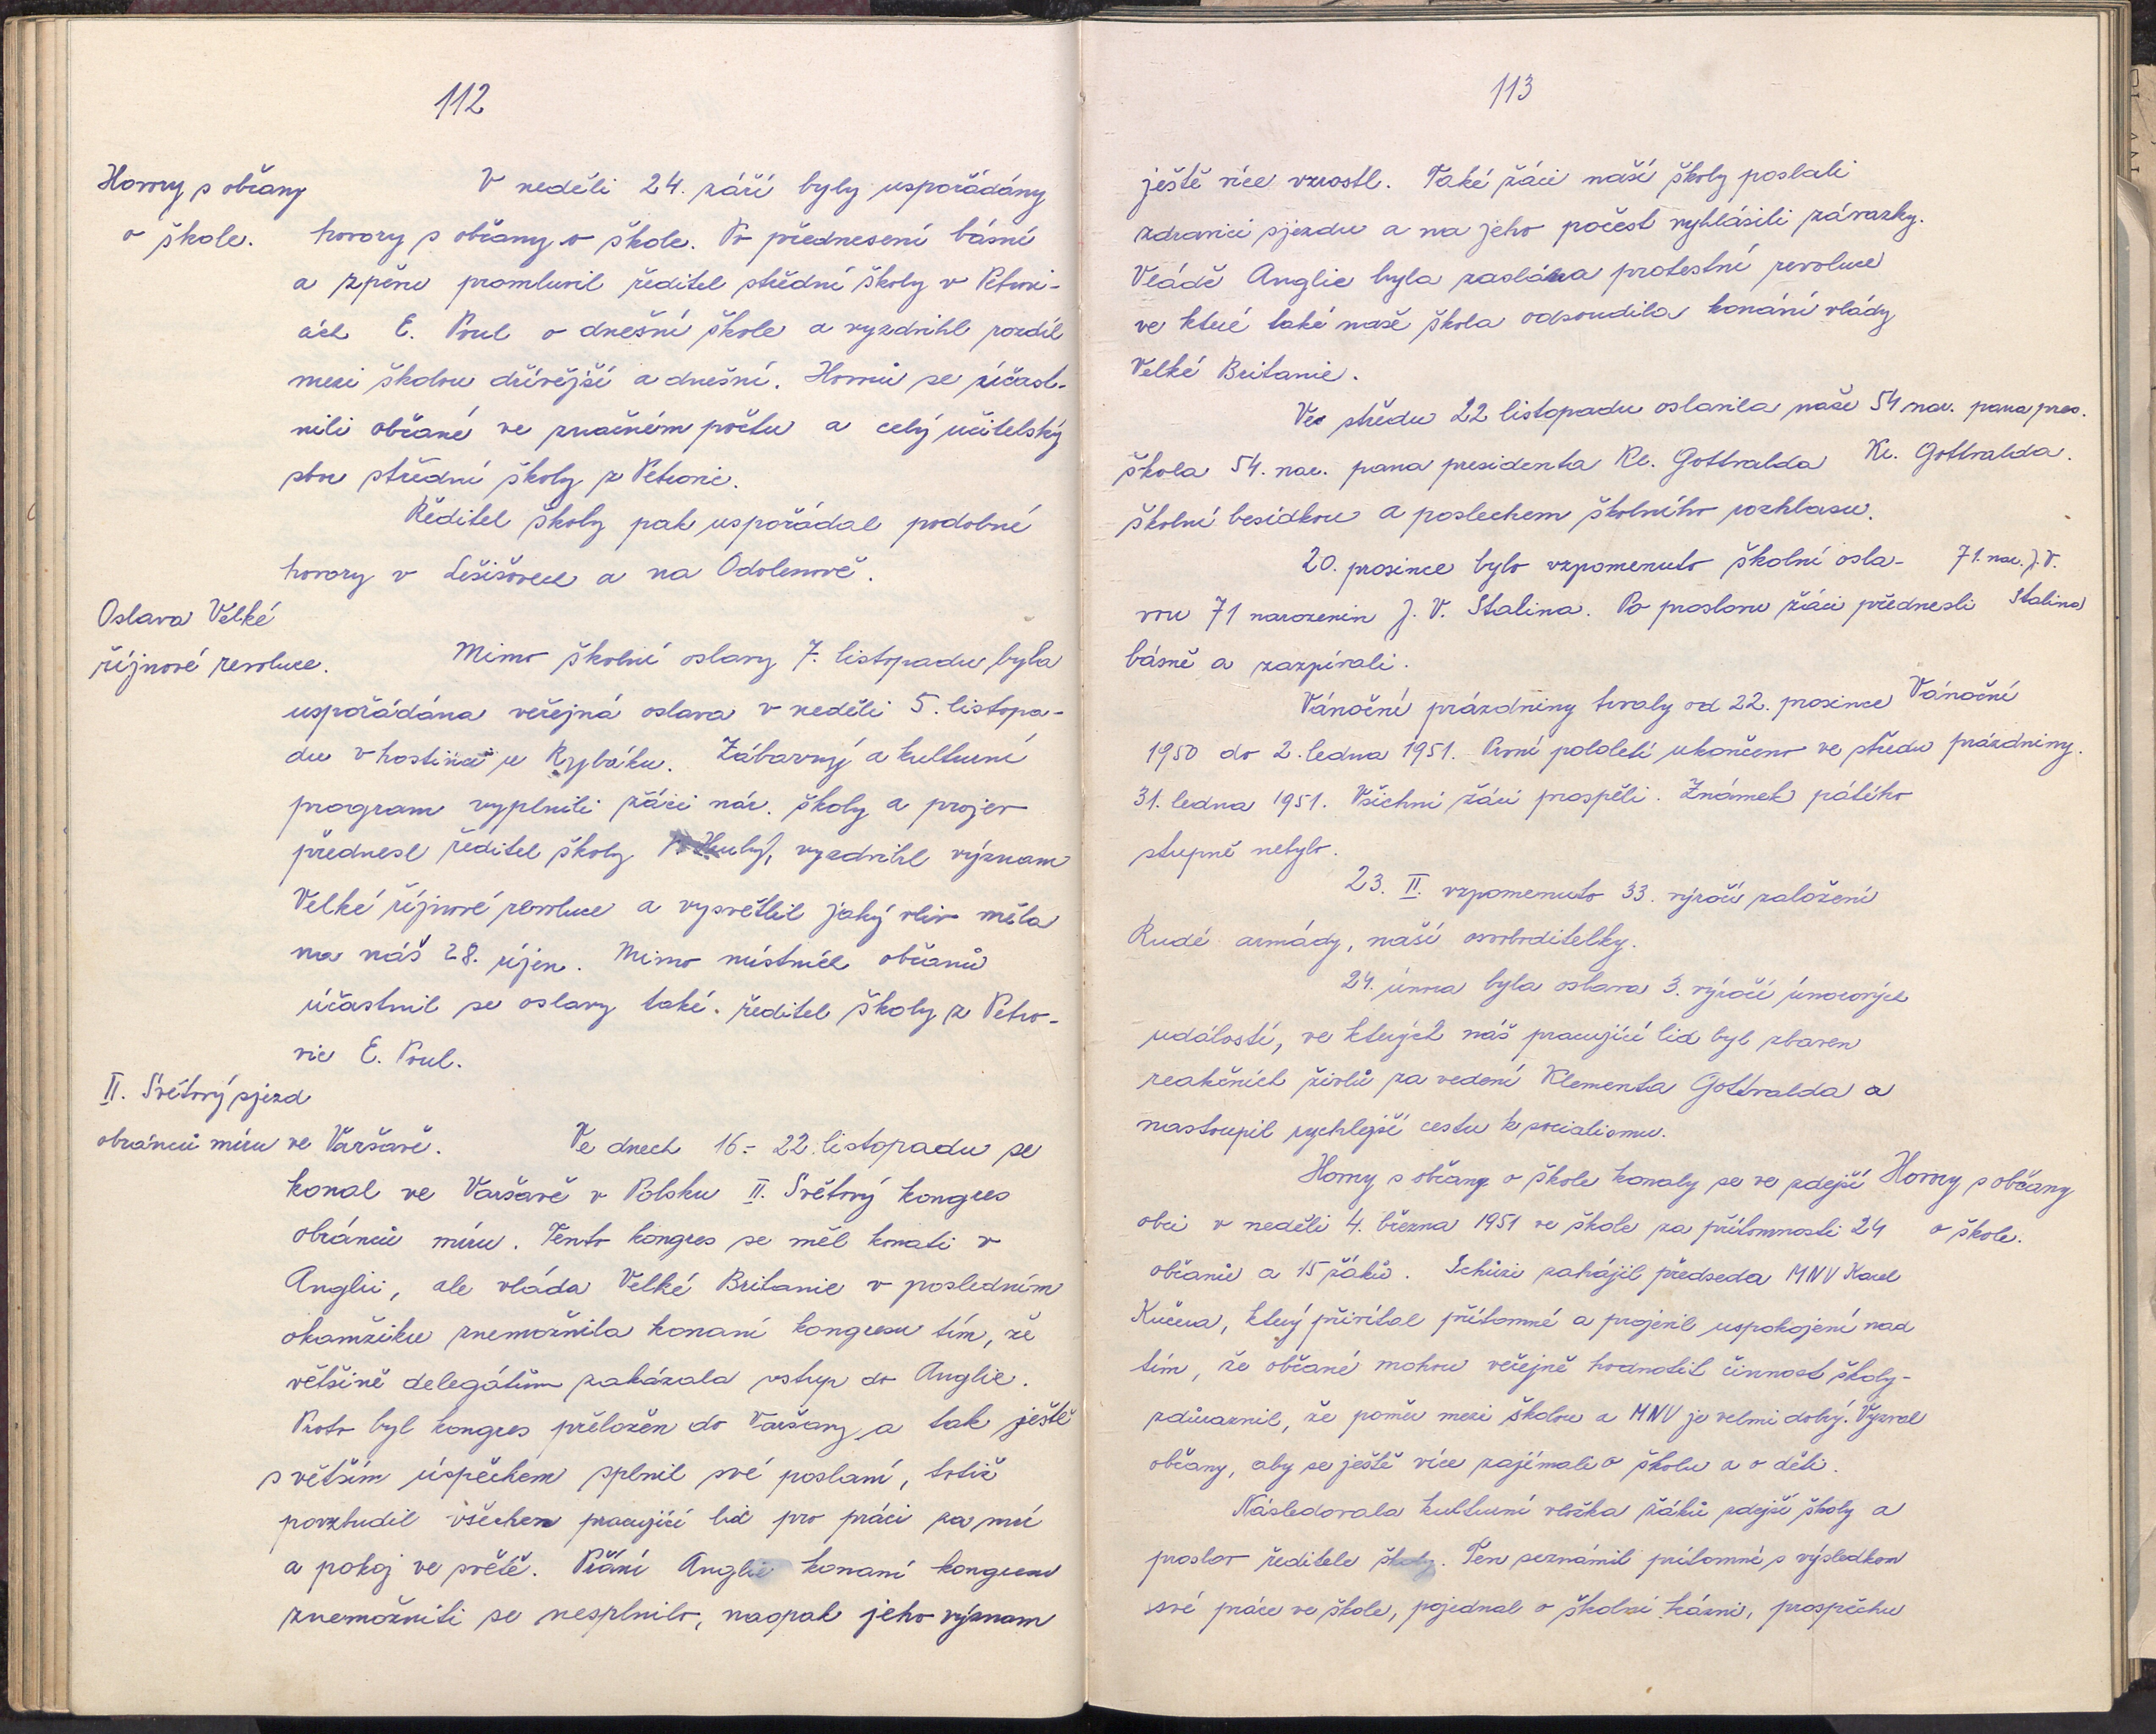 112
Hovory s občany
o škole.
V neděli 24. září byly uspořádány
hovory s občany o škole. Po přednesení básní
a zpěvu promluvil ředitel střední školy v Petrovi-
cích E. Poul o dnešní škole a vyzdvihl rozdíl
mezi školou dřívější a dnešní. Hovorů se zúčast-
nili občané ve značném počtu a celý učitelský
sbor střední školy z Petrovic.
Ředitel školy pak uspořádal podobné
hovory v Lešišovech a na Odolenově.
Oslava Velké
říjnové revoluce.
Mimo školní oslavy 7. listopadu byla
uspořádána veřejná oslava v neděli 5. listopa-
du v hostinci u Rybáku. Zábavný a kulturní
program vyplnili žáci nár. školy a projev
přednesl ředitel školy, vyzdvihl význam
Velké říjnové revoluce a vysvětlil jaký vliv měla
na náš 28. říjen. Mimo místních občanů
účastnil se oslavy také. ředitel školy z Petro-
vic E. Poul.
II. Světový sjezd
obránců míru ve Varšavě.
Ve dnech 16.- 22. listopadu se
konal ve Varšavě v Polsku II. Světový kongres
obránců míru. Tento kongres se měl konati v
Anglii, ale vláda Velké Britanie v posledním
okamžiku znemožnila konaní kongresu tím, že
většině delegátům zakázala vstup do Anglie.
Proto byl kongres přeložen do Varšavy a tak ještě
s větším úspěchem splnil své poslaní, totiž
povzbudil všechen pracující lid pro práci za mír
a pokoj ve světě. Přání Anglie konaní kongresu
znemožniti se nesplnilo, naopak jeho význam
113
ještě více vzrostl. Také žáci naší školy poslali
zdravici sjezdu a na jeho počest vyhlásili závazky.
Vládě Anglie byla zaslána protestní resoluce
ve které také naše škola odsoudila konání vlády
Velké Britanie.
Ve středu 22 listopadu oslavila naše
škola 54. nar. pana presidenta Kl. Gottwalda
školní besídkou a poslechem školního rozhlasu.
54 nar. pana pres.
Kl. Gottwalda.
20. prosince bylo vzpomenuto školní osla-
vou 71 narozenin J. V. Stalina. Po proslovu žáci přednesli
básně a zazpívali.
71. nar. J. V.
Stalina
Vánoční prázdniny trvaly od 22. prosince
1950 do 2. ledna 1951. První pololetí ukončeno ve středu
31. ledna 1951. Všichni žáci prospěli. Známek pátého
stupně nebylo.
Vánoční
prázdniny.
23. II. vzpomenuto 33. výročí založení
Rudé armády, naší osvoboditelky.
24. února byla oslava 3. výročí únorových
událostí, ve kterých náš pracující lid byl zbaven
reakčních živlů za vedení Klementa Gottwalda a
nastoupil rychlejší cestu k socialismu.
Hovory s občany o škole konaly se ve zdejší
obci v neděli 4. března 1951 ve škole za přítomnosti 24
občanů a 15 žáků. Schůzi zahájil předseda MNV Karel
Kučera, který přivítal přítomné a projevil uspokojení nad
tím, že občané mohou veřejně hodnotit činnost školy -
zdůraznil, že poměr mezi školou a MNV je velmi dobrý. Vyzval
občany, aby se ještě více zajímali o školu a o děti.
Hovory s občany
o škole.
Následovala kulturní vložka žáků zdejší školy a
proslov ředitele školy. Ten seznámil přítomné s výsledkem
své práce ve škole, pojednal o školní kázni, prospěchu